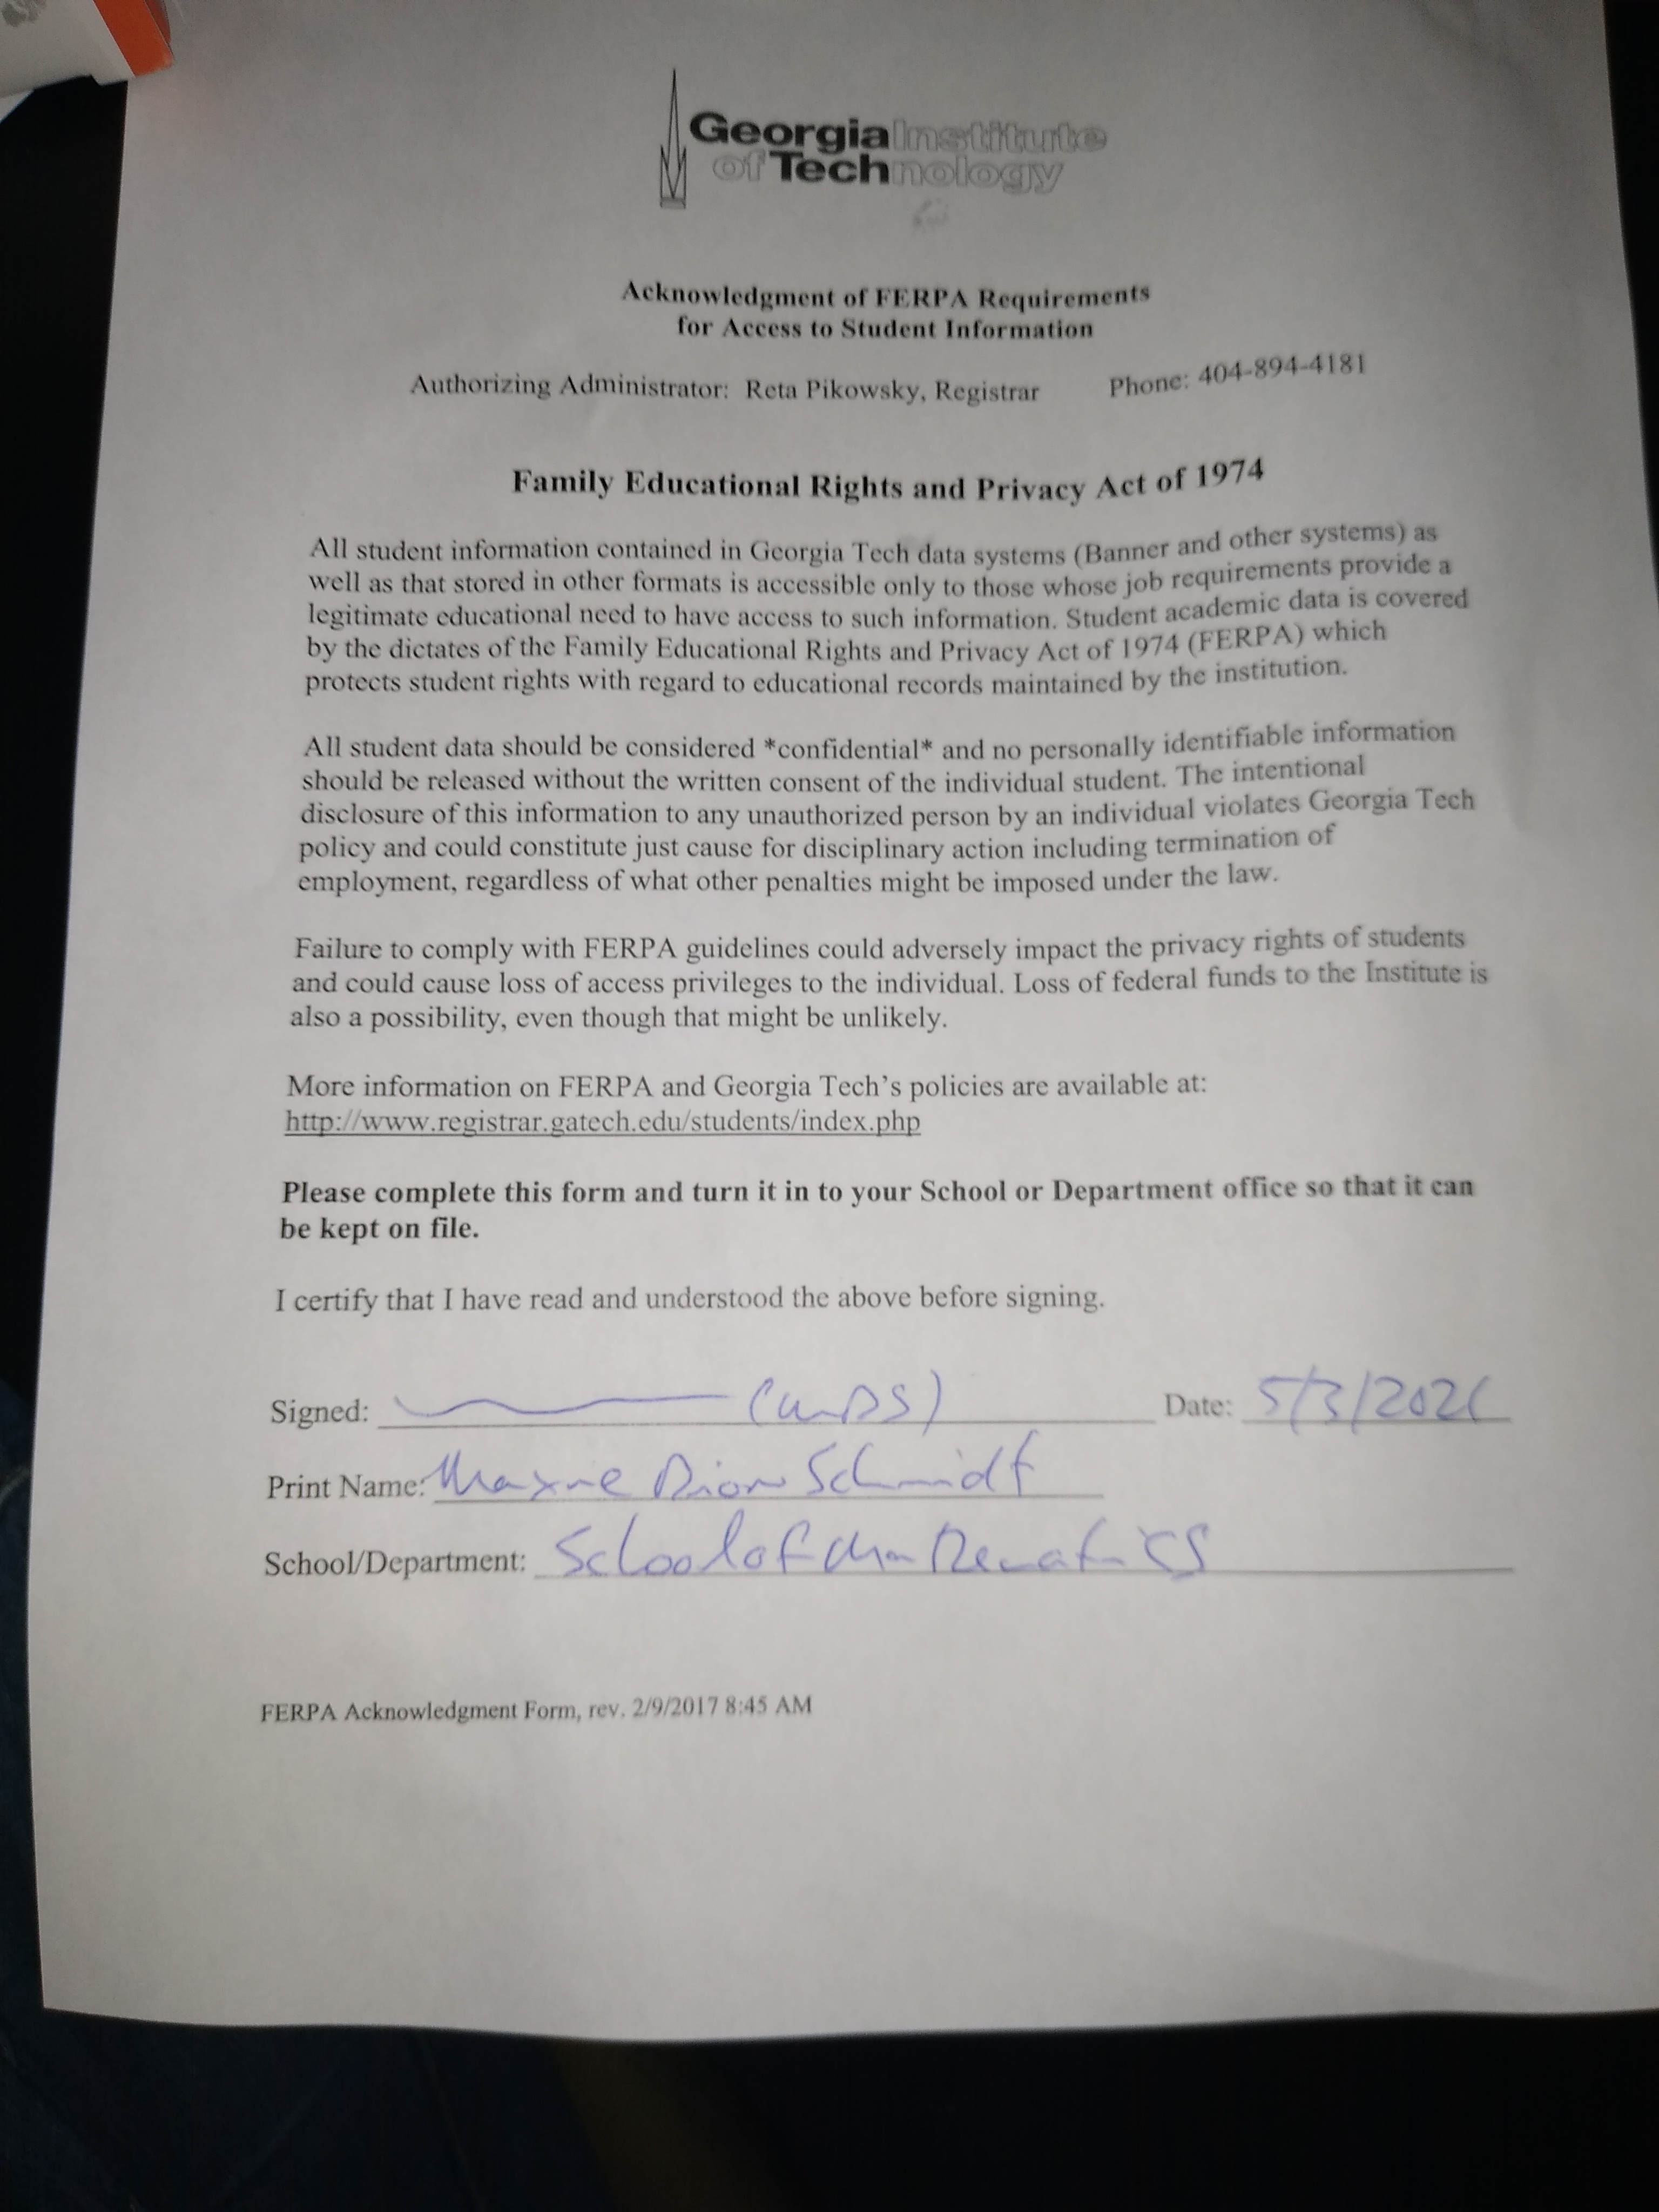 Georgia Institute
of Technology
Acknowledgment of FERPA Requirements
for Access to Student Information
Authorizing Administrator: Reta Pikowsky, Registrar Phone: 404-894-4181
Family Educational Rights and Privacy Act of 1974
All student information contained in Georgia Tech data systems (Banner and other systems) as
well as that stored in other formats is accessible only to those whose job requirements provide a
legitimate educational need to have access to such information. Student academic data is covered
by the dictates of the Family Educational Rights and Privacy Act of 1974 (FERPA) which
protects student rights with regard to educational records maintained by the institution.
All student data should be considered *confidential* and no personally identifiable information
should be released without the written consent of the individual student. The intentional
disclosure of this information to any unauthorized person by an individual violates Georgia Tech
policy and could constitute just cause for disciplinary action including termination of
employment, regardless of what other penalties might be imposed under the law.
Failure to comply with FERPA guidelines could adversely impact the privacy rights of students
and could cause loss of access privileges to the individual. Loss of federal funds to the Institute is
also a possibility, even though that might be unlikely.
More information on FERPA and Georgia Tech's policies are available at:
http://www.registrar.gatech.edu/students/index.php
Please complete this form and turn it in to your School or Department office so that it can
be kept on file.
I certify that I have read and understood the above before signing.
Signed: Date: 5/3/2021
Print Name: Maxie Dion Schmidt
School/Department: School of Mathematics
FERPA Acknowledgment Form, rev. 2/9/2017 8:45 AM